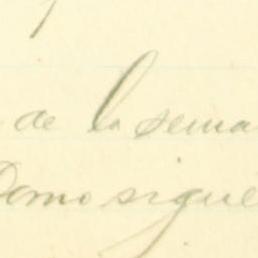 de la sema
Domo sigue